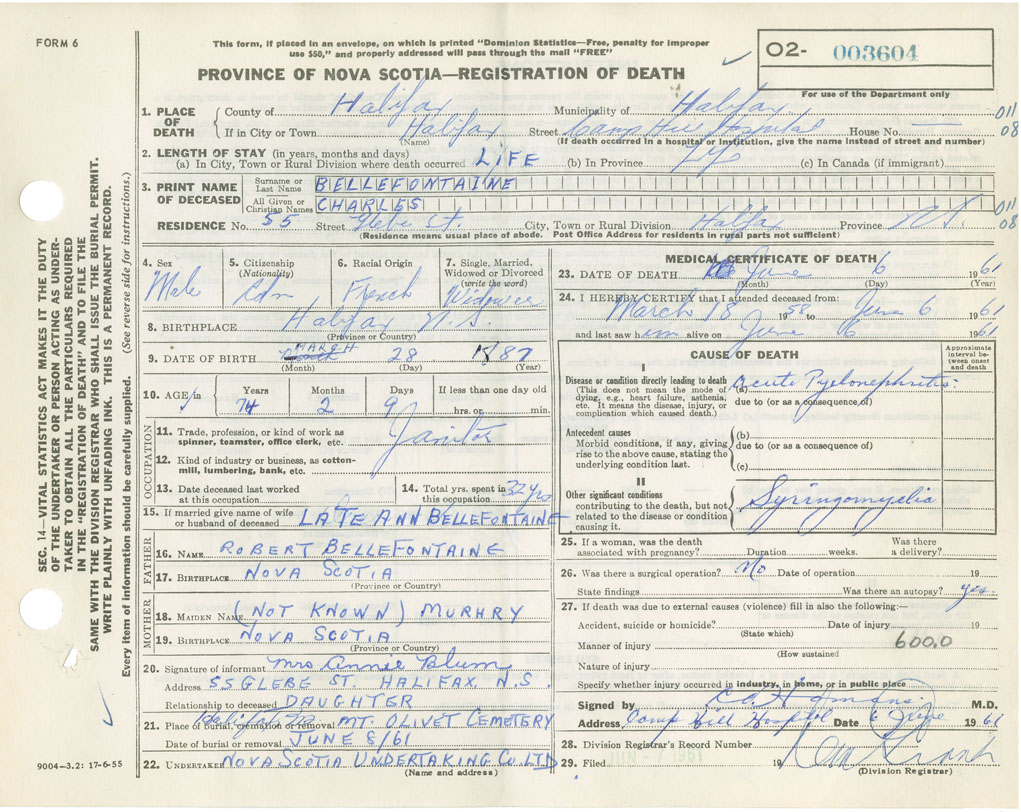 FORM 6
This form, if placed in an envelope, on which is printed "Dominion Statistics—Free, penalty for improper
use $50," and properly addressed will pass through the mail "FREE"
O2- 003604
For use of the Department only
PROVINCE OF NOVA SCOTIA—REGISTRATION OF DEATH
1. PLACE OF DEATH
County of Halifax Municipality of Halifax 011
If in City or Town Halifax Street Camp Hill Hospital House No. — 08
(Name) (If death occurred in a hospital or institution, give the name instead of street and number)
2. LENGTH OF STAY (in years, months and days)
(a) In City, Town or Rural Division where death occurred LIFE (b) In Province (c) In Canada (if immigrant)
3. PRINT NAME OF DECEASED
Surname or Last Name BELLEFONTAINE
All Given or Christian Names CHARLES 011
RESIDENCE No. 55 Street City, Town or Rural Division Halifax Province N.S. 08
(Residence means usual place of abode. Post Office Address for residents in rural parts not sufficient)
4. Sex Male
5. Citizenship (Nationality) Cdn
6. Racial Origin French
7. Single, Married, Widowed or Divorced (write the word) Widower
8. BIRTHPLACE Halifax N.S.
(Province or Country)
9. DATE OF BIRTH MARCH 28 1887
(Month) (Day) (Year)
10. AGE in Years 74 Months 2 Days 9 If less than one day old hrs. or min.
OCCUPATION
11. Trade, profession, or kind of work as spinner, teamster, office clerk, etc. Janitor
12. Kind of industry or business, as cotton-mill, lumbering, bank, etc.
13. Date deceased last worked at this occupation
14. Total yrs. spent in this occupation 32 yrs
15. If married give name of wife or husband of deceased LATE ANN BELLEFONTAINE
FATHER
16. NAME ROBERT BELLEFONTAINE
17. BIRTHPLACE NOVA SCOTIA
(Province or Country)
MOTHER
18. MAIDEN NAME (NOT KNOWN) MURHRY
19. BIRTHPLACE NOVA SCOTIA
(Province or Country)
20. Signature of informant Mrs Annie Blum
Address 55 GLEBE ST. HALIFAX, N.S.
Relationship to deceased DAUGHTER
21. Place of Burial, cremation or removal MT. OLIVET CEMETERY
Date of burial or removal JUNE 8/61
22. UNDERTAKER NOVA SCOTIA UNDERTAKING CO. LTD
(Name and address)
9004—3.2: 17-6-55
SEC. 14—VITAL STATISTICS ACT MAKES IT THE DUTY
OF THE UNDERTAKER OR PERSON ACTING AS UNDER-
TAKER TO OBTAIN ALL THE PARTICULARS REQUIRED
IN THE "REGISTRATION OF DEATH" AND TO FILE THE
SAME WITH THE DIVISION REGISTRAR WHO SHALL ISSUE THE BURIAL PERMIT.
WRITE PLAINLY WITH UNFADING INK. THIS IS A PERMANENT RECORD.
Every item of information should be carefully supplied. (See reverse side for instructions.)
MEDICAL CERTIFICATE OF DEATH
23. DATE OF DEATH June 6 1961
(Month) (Day) (Year)
24. I HEREBY CERTIFY that I attended deceased from:
March 18 1958 to June 6 1961
and last saw him alive on June 6 1961
CAUSE OF DEATH
Approximate interval between onset and death
I
Disease or condition directly leading to death (a) Acute Pyelonephritis
(This does not mean the mode of dying, e.g., heart failure, asthenia, etc. It means the disease, injury, or complication which caused death.)
due to (or as a consequence of)
Antecedent causes (b)
Morbid conditions, if any, giving rise to the above cause, stating the underlying condition last.
due to (or as a consequence of)
(c)
II
Other significant conditions contributing to the death, but not related to the disease or condition causing it.
Syringomyelia
25. If a woman, was the death associated with pregnancy? Duration weeks. Was there a delivery?
26. Was there a surgical operation? No Date of operation 19
State findings Was there an autopsy? yes.
27. If death was due to external causes (violence) fill in also the following:—
Accident, suicide or homicide? Date of injury 19
(State which)
Manner of injury 600.0
(How sustained
Nature of injury
Specify whether injury occurred in industry, in home, or in public place
Signed by M.D.
Address Camp Hill Hospital Date 6 June 1961
28. Division Registrar's Record Number
29. Filed JUN - 7 1961 19
(Division Registrar)